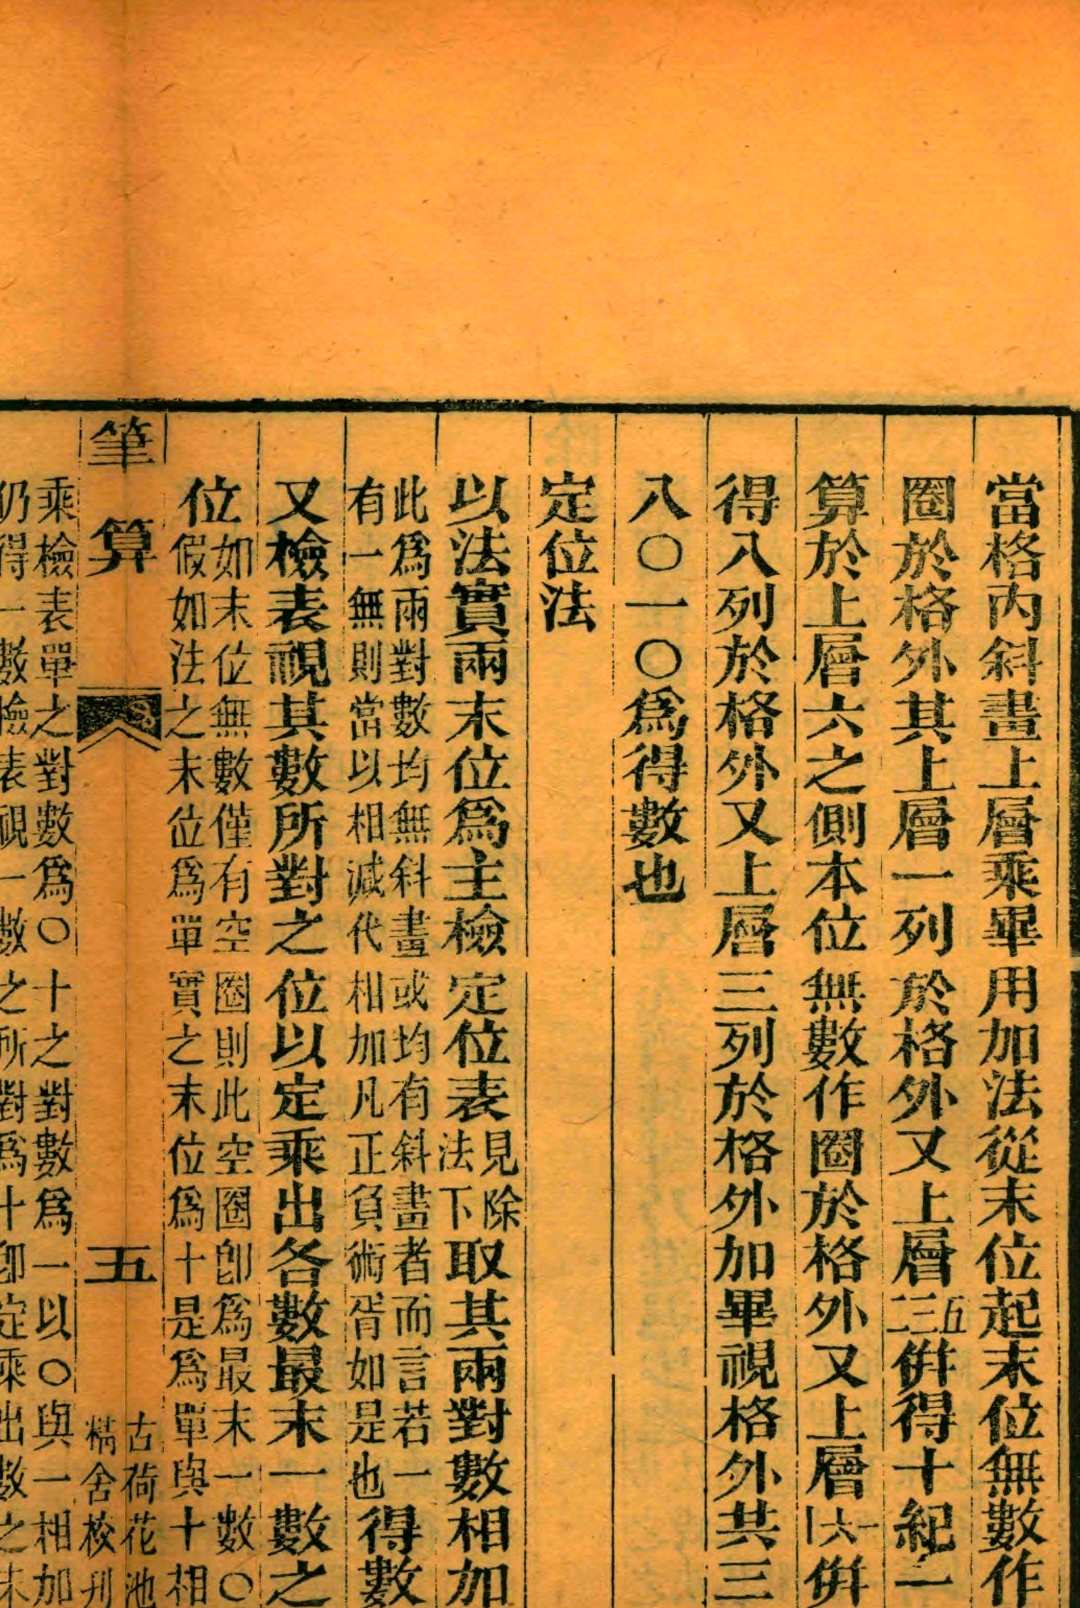 當格內斜畫上層乘畢用加法從末位起末位無數作
圈於格外其上層一列於格外又上層五三二併得十紀一
算於上層六之側本位無數作圈於格外又上層一六一併
得八列於格外又上層三列於格外加畢視格外共三
八〇一〇爲得數也
定位法
以法實兩末位爲主檢定位表見除法下取其兩對數相加
此爲兩對數均無斜畫或均有斜畫者而言若一
有一無則當以相減代相加凡正負術胥如是也得數
又檢表視其數所對之位以定乘出各數最末一數之
位如末位無數僅有空圈則此空圈卽爲最末一數〇
假如法之末位爲單實之末位爲十是爲單與十相
筆算 五 古荷花池
精舍校刋
乘檢表單之對數爲〇十之對數爲一以〇與一相加
仍得一數檢表視一數之所對爲十卽定乘出數之末